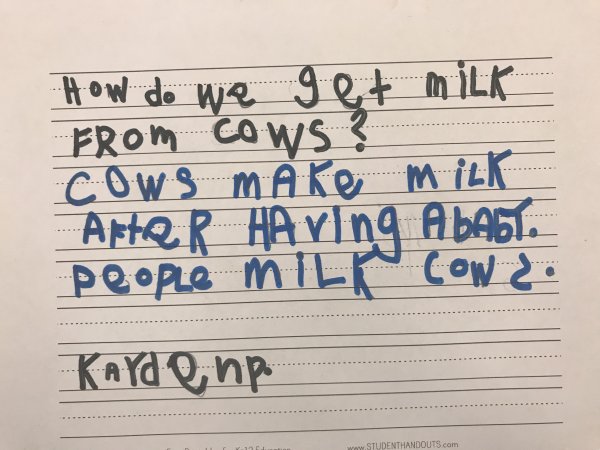 HOW do we get MiLK
FROM COWS?
COWS MAKe MiLK
AFteR HAVing A bAbY.
PEOPLE MiLK COWS.
KAYdenp.
www.STUDENTHANDOUTS.com